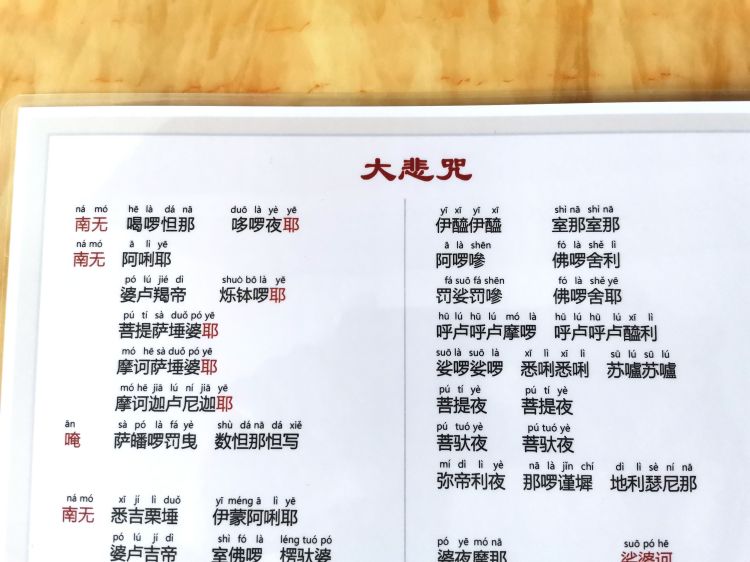 大悲咒
ná mó hē là dá nā duō là yè yē
南无 喝啰怛那 哆啰夜耶
ná mó ā lì yē
南无 阿唎耶
pó lú jié dì shuò bō là yē
婆卢羯帝 烁钵啰耶
pú tí sà duǒ pó yē
菩提萨埵婆耶
mó hē sà duǒ pó yē
摩诃萨埵婆耶
mó hē jiā lú ní jiā yē
摩诃迦卢尼迦耶
ān sà pó là fá yè shù dá nā dá xiě
唵 萨皤啰罚曳 数怛那怛写
ná mó xī jí lì duǒ yī méng ā lì yē
南无 悉吉栗埵 伊蒙阿唎耶
pó lú jí dì shì fó là léng tuó pó
婆卢吉帝 室佛啰 楞驮婆
yī xī yī xī shì nā shì nā
伊醯伊醯 室那室那
ā là shēn fó là shě lì
阿啰嘇 佛啰舍利
fá suō fá shēn fó là shě yē
罚娑罚嘇 佛啰舍耶
hū lú hū lú mó là hū lú hū lú xī lì
呼卢呼卢摩啰 呼卢呼卢醯利
suō là suō là xī lì xī lì sū lú sū lú
娑啰娑啰 悉唎悉唎 苏嚧苏嚧
pú tí yè pú tí yè
菩提夜 菩提夜
pú tuó yè pú tuó yè
菩驮夜 菩驮夜
mí dì lì yè nā là jǐn chí dì lì sè ní nā
弥帝利夜 那啰谨墀 地利瑟尼那
pó yè mó nā suō pó hē
婆夜摩那 娑婆诃